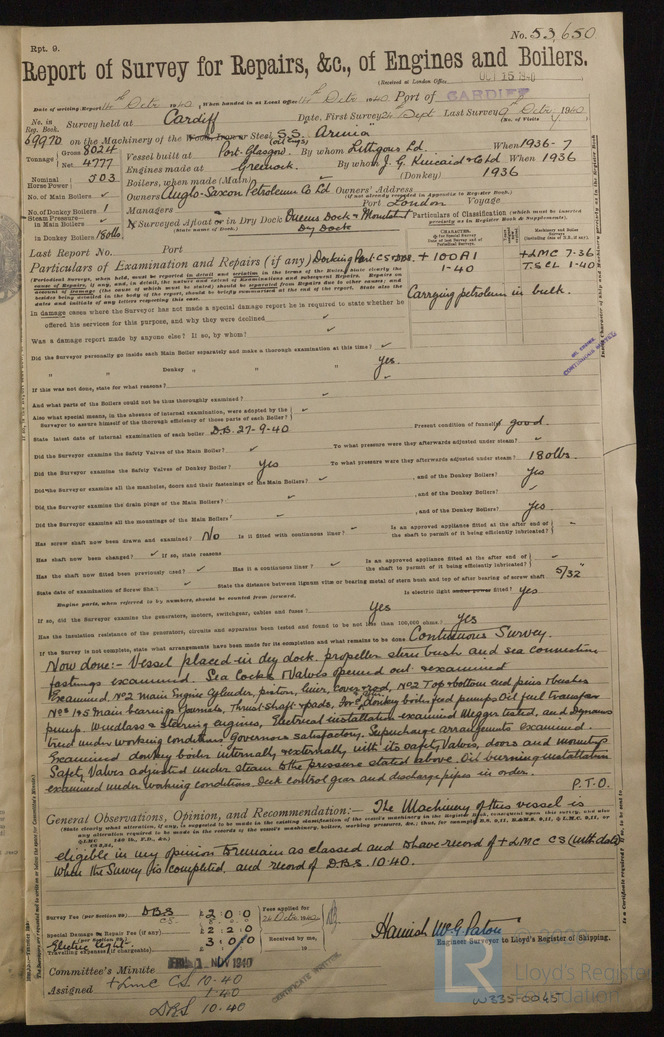 Rpt. 9.
No. 53,650
Report of Survey for Repairs, &c., of Engines and Boilers.
(Received at London Office OCT 15 1940
Date of writing Report 14th Octr 1940, When handed in at Local Office 14th Octr 1940 Port of CARDIFF
No. in Reg. Book. Survey held at Cardiff Date, First Survey 24th Sept Last Survey 9th Octr 1940
(No. of Visits 7)
69970 on the Machinery of the Wood, Iron or Steel S.S. Arinia
(oil engs)
Tonnage Gross 8024 Net 4777 Vessel built at Port Glasgow. By whom Lithgows Ld. When 1936-7
Engines made at Greenock. By whom J. G. Kincaid & Co Ld When 1936
Nominal Horse Power 503 Boilers, when made (Main) (Donkey) 1936
No. of Main Boilers Owners Anglo-Saxon Petroleum Co Ld Owners' Address
(if not already recorded in Appendix to Register Book.)
No. of Donkey Boilers 1 Managers Port London Voyage
Steam Pressure in Main Boilers If Surveyed Afloat or in Dry Dock Queens Dock & Mountstuart Dry Dock
(State name of Dock.)
in Donkey Boilers 180 lbs
Particulars of Classification (which must be inserted precisely as in Register Book & Supplements).
Last Report No. Port
Particulars of Examination and Repairs (if any) Docking Part CS & DBS.
+ 100A1
1-40
+ LMC 7-36
TSCL 1-40
Carrying petroleum in bulk.
In damage cases where the Surveyor has not made a special damage report he is required to state whether he
offered his services for this purpose, and why they were declined
Was a damage report made by anyone else? If so, by whom?
Did the Surveyor personally go inside each Main Boiler separately and make a thorough examination at this time?
" " Donkey " " " Yes.
If this was not done, state for what reasons?
And what parts of the Boilers could not be thus thoroughly examined?
Also what special means, in the absence of internal examination, were adopted by the
Surveyor to assure himself of the thorough efficiency of those parts of each Boiler?
State latest date of internal examination of each boiler D.B. 27-9-40 Present condition of funnel(s) good.
Did the Surveyor examine the Safety Valves of the Main Boiler? To what pressure were they afterwards adjusted under steam?
Did the Surveyor examine the Safety Valves of Donkey Boiler? Yes To what pressure were they afterwards adjusted under steam? 180 lbs.
Did the Surveyor examine all the manholes, doors and their fastenings of the Main Boilers? , and of the Donkey Boilers? Yes
Did the Surveyor examine the drain plugs of the Main Boilers? , and of the Donkey Boilers?
Did the Surveyor examine all the mountings of the Main Boilers? , and of the Donkey Boilers? Yes.
Has screw shaft now been drawn and examined? No Is it fitted with continuous liner? Is an approved appliance fitted at the after end of
the shaft to permit of it being efficiently lubricated?
Has shaft now been changed? If so, state reasons
Has the shaft now fitted been previously used? Has it a continuous liner? Is an approved appliance fitted at the after end of
the shaft to permit of it being efficiently lubricated?
State date of examination of Screw Shaft State the distance between lignum vitæ or bearing metal of stern bush and top of after bearing of screw shaft 5/32"
Engine parts, when referred to by numbers, should be counted from forward. Is electric light fitted? Yes
If so, did the Surveyor examine the generators, motors, switchgear, cables and fuses? Yes
Has the insulation resistance of the generators, circuits and apparatus been tested and found to be not less than 100,000 ohms? Yes
If the Survey is not complete, state what arrangements have been made for its completion and what remains to be done Continuous Survey.
Now done:- Vessel placed in dry dock. propeller stern bush and sea connection
fastings examined. Sea Cocks & Valves opened out & examined
Examined No 2 Main Engine Cylinder, piston, liner, Cover & rod, No 2 Top & bottom end pins & bushes
Nos 1 & 5 main bearings & journals, Thrust shaft & pads, donkey boiler feed pumps, Oil fuel transfer
pump. Windlass & steering engines, Electrical installation examined Megger tested, and Dynamos
tried under working conditions, Governors satisfactory. Supercharge arrangements examined.
Examined donkey boiler internally & externally with its safety Valves, doors and mountings
Safety Valves adjusted under steam to the pressure stated above. Oil burning installation
examined under working conditions. Deck control gear and discharge pipes in order.
P.T.O.
General Observations, Opinion, and Recommendation:— The Machinery of this vessel is
eligible in my opinion to remain as classed and to have record of + LMC CS (with date)
when the Survey is completed, and record of D.B.S. 10.40.
Survey Fee (per Section 29) DBS £2:0:0 Fees applied for
Special Damage or Repair Fee (if any) £2:2:0 26 Octr 1940
Electric Light. 3:0:0 Received by me,
Travelling expenses (if chargeable)
Hamish McG. Paton
Engineer Surveyor to Lloyd's Register of Shipping.
Committee's Minute FRI. 1 NOV 1940
Assigned + LMC CS. 10-40
1.40
DBS 10-40
CERTIFICATE WRITTEN
LR
Lloyd's Register
Foundation
W335-0045